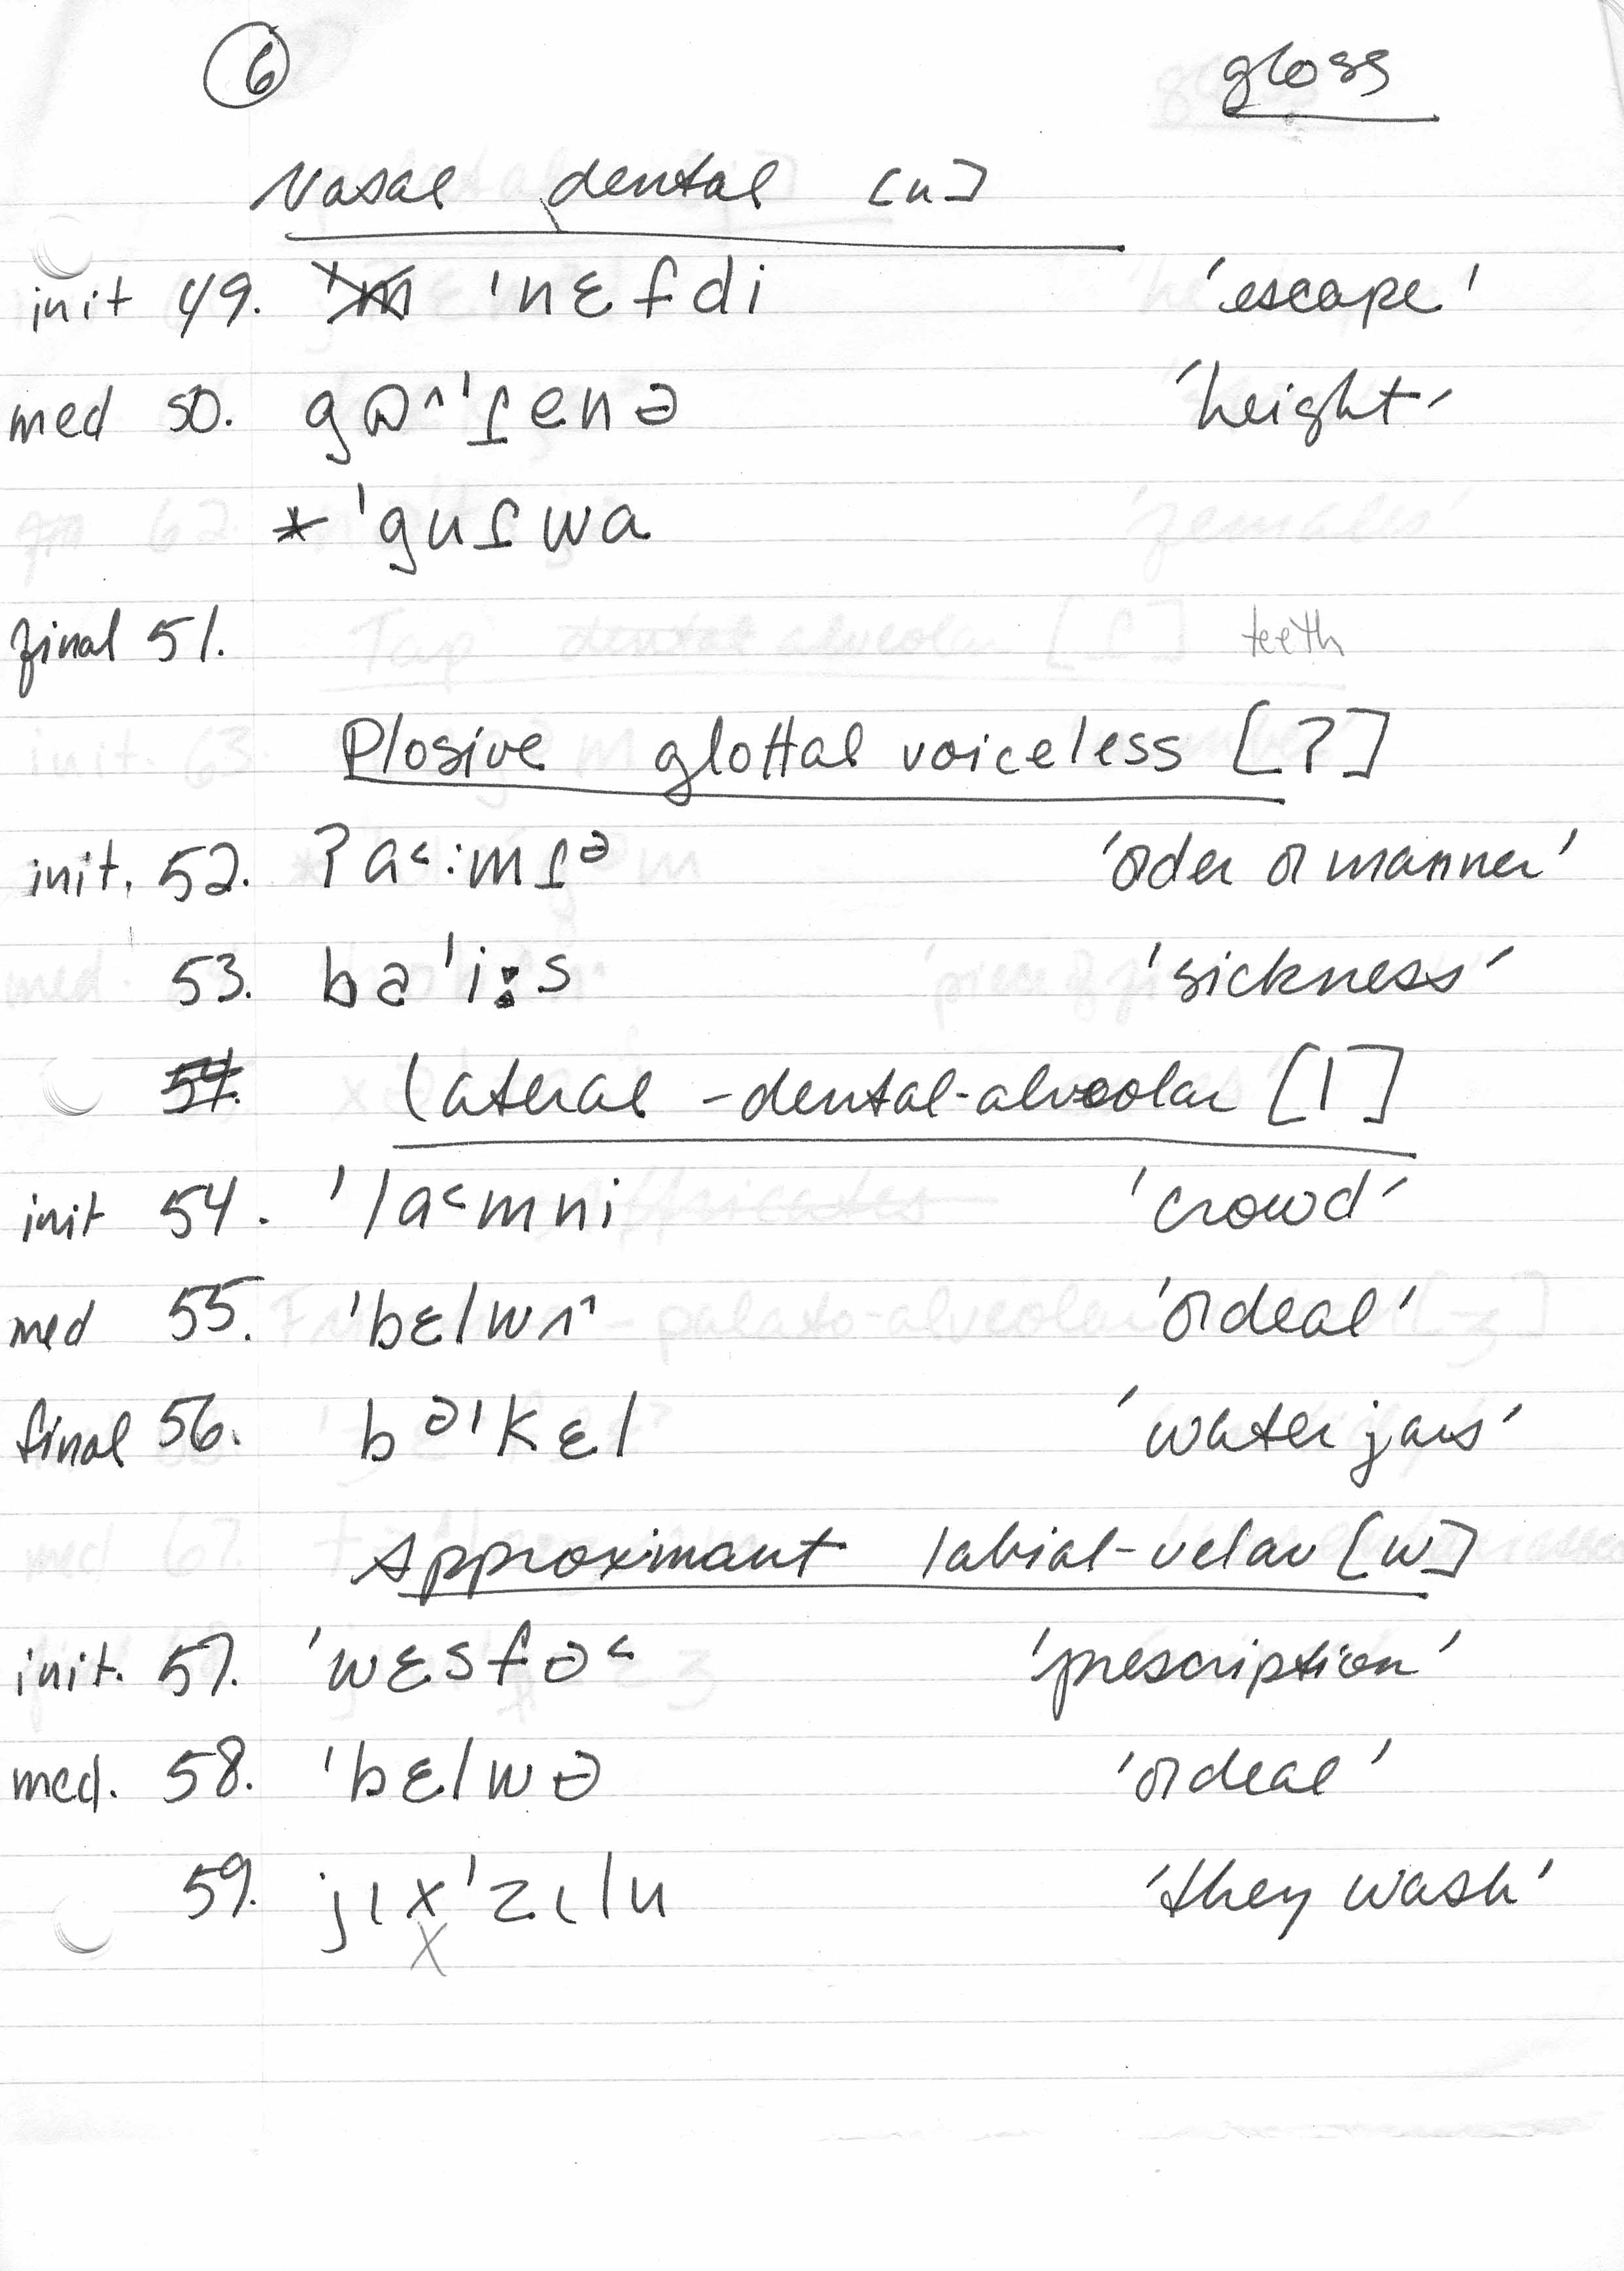 6 gloss
Nasal dental [n]
init 49. ˈnɛfdi 'escape'
med 50. gɒ^ˈɾenə 'height'
* ˈguɾwa
final 51. teeth
Plosive glottal voiceless [ʔ]
init. 52. ʔa˂:mɾᵊ 'order or manner'
53. bəˈi:s 'sickness'
54.
Lateral - dental-alveolar [l]
init 54. ˈla˂mni 'crowd'
med 55. ˈbɛlwʌ^ 'ordeal'
final 56. bᵊˈkɛl 'water jars'
Approximant labial-velar [w]
init. 57. ˈwɛsfə˂ 'prescription'
med. 58. ˈbɛlwə 'ordeal'
59. jɪxˈzɪlu 'they wash'
x